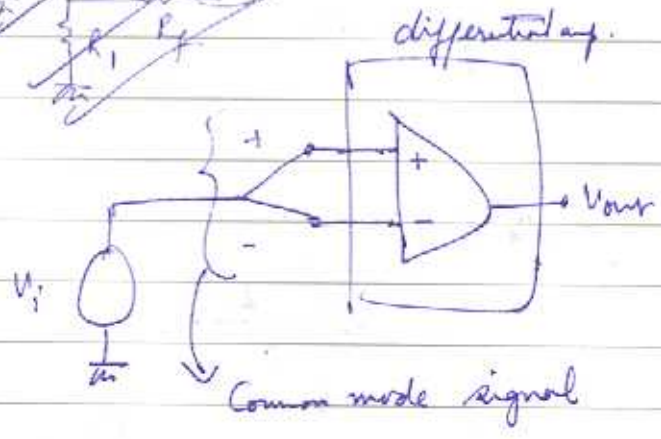 R1
differential amp.
+
+
Vout
-
-
Vi
Common mode signal